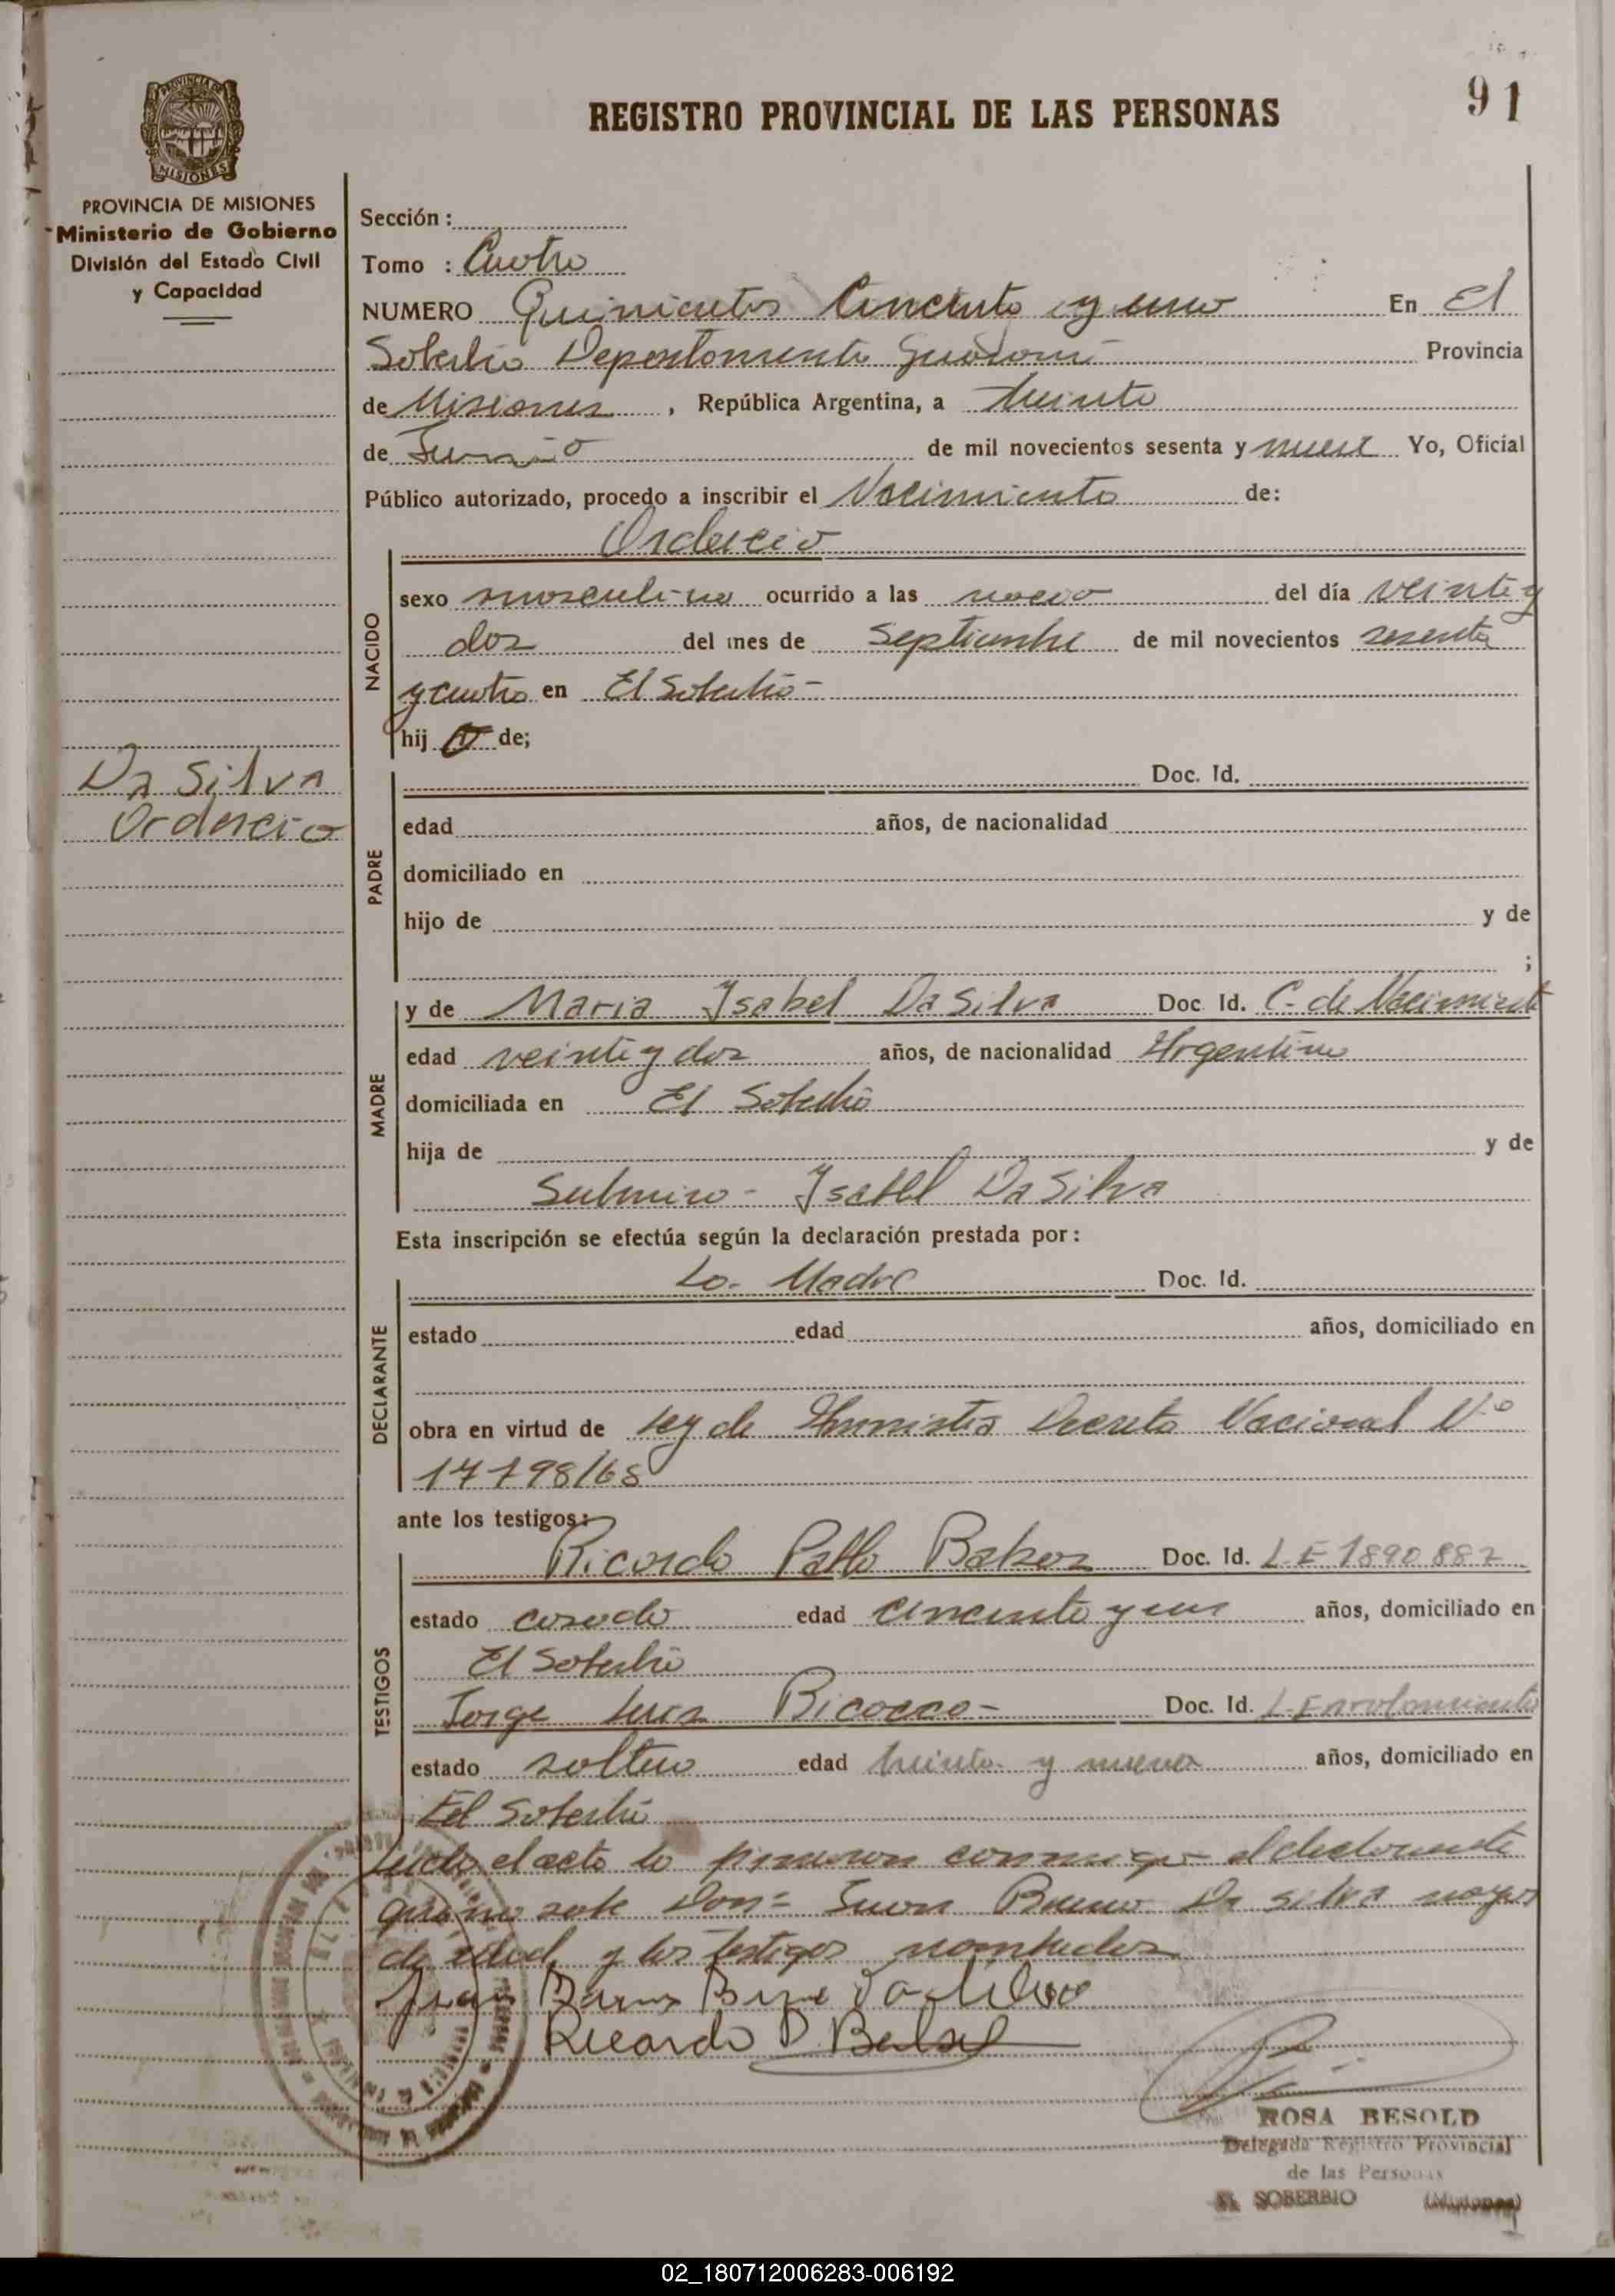 91
REGISTRO PROVINCIAL DE LAS PERSONAS
PROVINCIA DE MISIONES
MISIONES
PROVINCIA DE MISIONES
Ministerio de Gobierno
División del Estado Civil
y Capacidad
Da Silva
Ordercio
Sección :
Tomo : Cuatro
NUMERO Quinientos Cincuenta y uno En El
Soberbio Departamento Guaraní Provincia
de Misiones , República Argentina, a treinta
de Junio de mil novecientos sesenta y nueve Yo, Oficial
Público autorizado, procedo a inscribir el Nacimiento de:
Ordercio
NACIDO
sexo masculino ocurrido a las nueve del día veinte y
dos del mes de Septiembre de mil novecientos sesenta
y cuatro en El Soberbio -
hij o de;
PADRE
Doc. Id.
edad años, de nacionalidad
domiciliado en
hijo de y de
;
MADRE
y de Maria Ysabel Da Silva Doc. Id. C. de Nacimiento
edad veinte y dos años, de nacionalidad Argentina
domiciliada en El Soberbio
hija de y de
Ysabel Da Silva
Esta inscripción se efectúa según la declaración prestada por :
DECLARANTE
La Madre Doc. Id.
estado edad años, domiciliado en
obra en virtud de Ley de Amnistia Decreto Nacional Nº
17798/68
ante los testigos:
TESTIGOS
Ricardo Pablo Doc. Id. L E 1890 887
estado casado edad cincuenta y un años, domiciliado en
El Soberbio
Jorge Luis Bicocco - Doc. Id. L. Enrolamiento
estado soltero edad treinta y nueve años, domiciliado en
El Soberbio
Leida el acta lo firmaron conmigo el declarante
que no sabe Don = Juan Bruno Da Silva mayor
de edad y los testigos nombrados
Juan Da Silva
Ricardo P
ROSA BESOLD
Delegada Registro Provincial
de las Personas
EL SOBERBIO (Misiones)
02_180712006283-006192